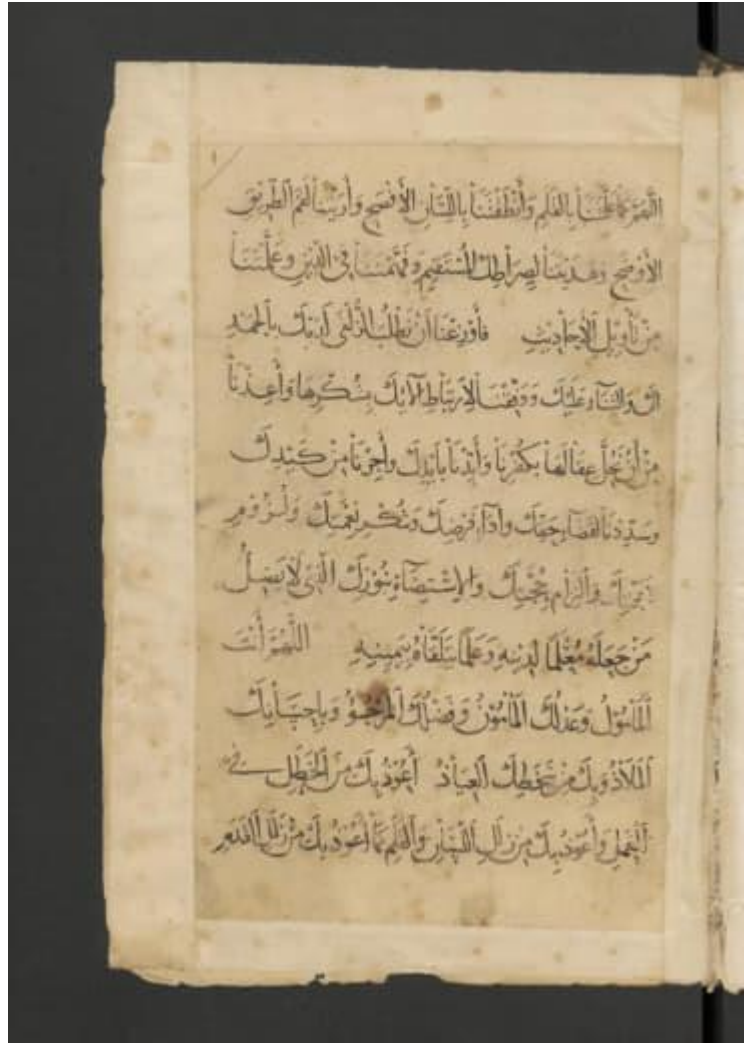 اللّهُمَّ كَمَا عَلَّمْتَنَا بِالقَلَمِ وَأَنْطَقْتَنَا بِاللِّسَانِ الأَفْصَحِ وَأَرَيْتَنَا لَقَمَ الطَّرِيقِ
الأَوْضَحِ وَهَدَيْتَنَا لِصِرَاطِكَ المُسْتَقِيمِ وَفَقَّهْتَنَا فِي الدِّينِ وَعَلَّمْتَنَا
مِنْ تَأْوِيلِ الأَحَادِيثِ فَأَوْزِعْنَا أَنْ نَطْلُبَ الزُّلْفَى لَدَيْكَ بِالحَمْدِ
لَكَ وَالثَّنَاءِ عَلَيْكَ وَوَفِّقْنَا لِارْتِبَاطِ آلَائِكَ بِشُكْرِهَا وَأَعِذْنَا
مِنْ أَنْ نَحُلَّ عِقَالَهَا بِكُفْرِنَا وَأَيِّدْنَا بِأَيْدِكَ وَأَجِرْنَا مِنْ كَيْدِكَ
وَسَدِّدْنَا لِقَضَاءِ حَقِّكَ وَأَدَاءِ فَرْضِكَ وَشُكْرِ نِعْمَتِكَ وَلُزُومِ
وَالْتِزَامِ حُجَّتِكَ وَالِاسْتِضَاءَةِ بِنُورِكَ الَّذِي لَا يَضِلُّ
مَنْ جَعَلَهُ مَعْلَمًا لِدِينِهِ وَعَلَمًا يَتَلَقَّاهُ بِيَمِينِهِ اللّهُمَّ أَنْتَ
المَأْمُولُ وَعَدْلُكَ المَأْمُونُ وَفَضْلُكَ المَرْجُوُّ وَبِإِحْسَانِكَ
المَلَاذُ وَبِكَ مِنْ سَخَطِكَ العِيَاذُ أَعُوذُ بِكَ مِنَ الخَطَلِ فِي
العَمَلِ وَأَعُوذُ بِكَ مِنْ زَلَلِ اللِّسَانِ وَالقَلَمِ كَمَا أَعُوذُ بِكَ مِنْ زَلَلِ القَدَمِ